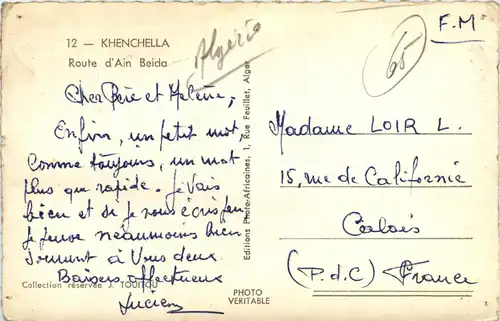 12 — KHENCHELLA
Route d'Ain Beida
Algérie
65
F.M
Cher et Helene,
Enfin, un petit mot,
Comme toujours, un mot
plus que rapide. Je vais
bien et si je vous écris peu
je pense néanmoins bien
souvent à Vous deux
Baisers affectueux
Lucien
Collection réservée J. TOUITOU
PHOTO
VERITABLE
Editions Photo-Africaines, 1, Rue Feuillet, Alger
Madame LOIR L.
15, rue de Californie
Calais
(P.d.C) France